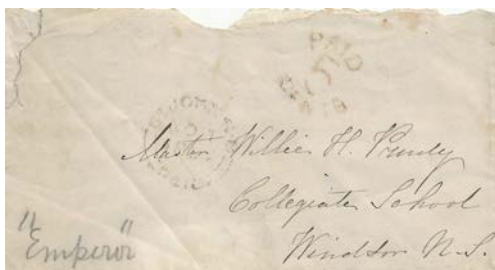 PAID
ST. JOHN
Master Willie H. Purdy
Collegiate School
Windsor N.S.
"Emperor"